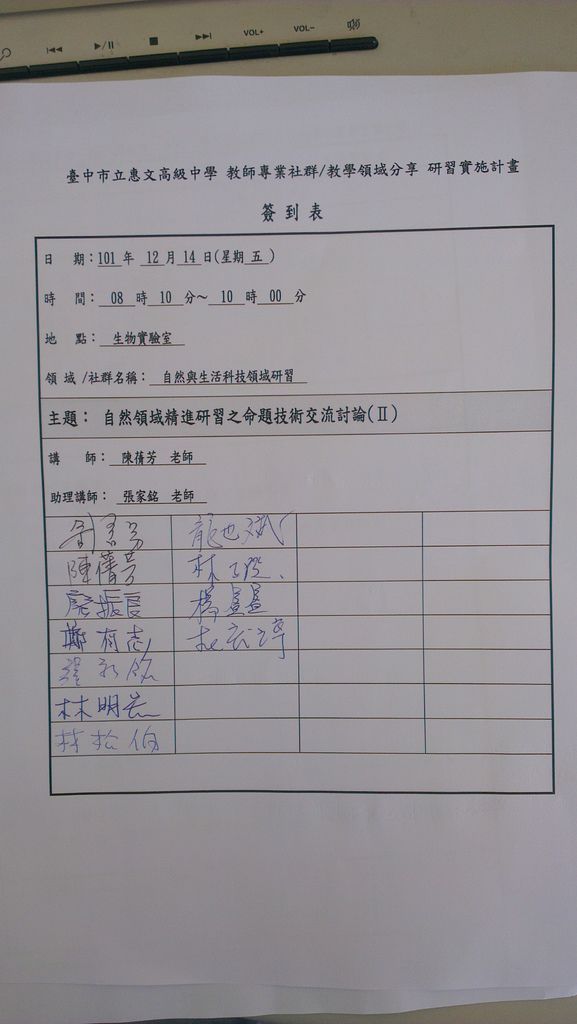 VOL+ VOL-
臺中市立惠文高級中學 教師專業社群/教學領域分享 研習實施計畫
簽到表
日 期：101 年 12 月 14 日(星期 五 )
時 間： 08 時 10 分～ 10 時 00 分
地 點： 生物實驗室
領域/社群名稱： 自然與生活科技領域研習
主題： 自然領域精進研習之命題技術交流討論(Ⅱ)
講 師： 陳蒨芳 老師
助理講師： 張家銘 老師
陳蒨芳
楊晝晝
鄭有志
林明宏
林松伯